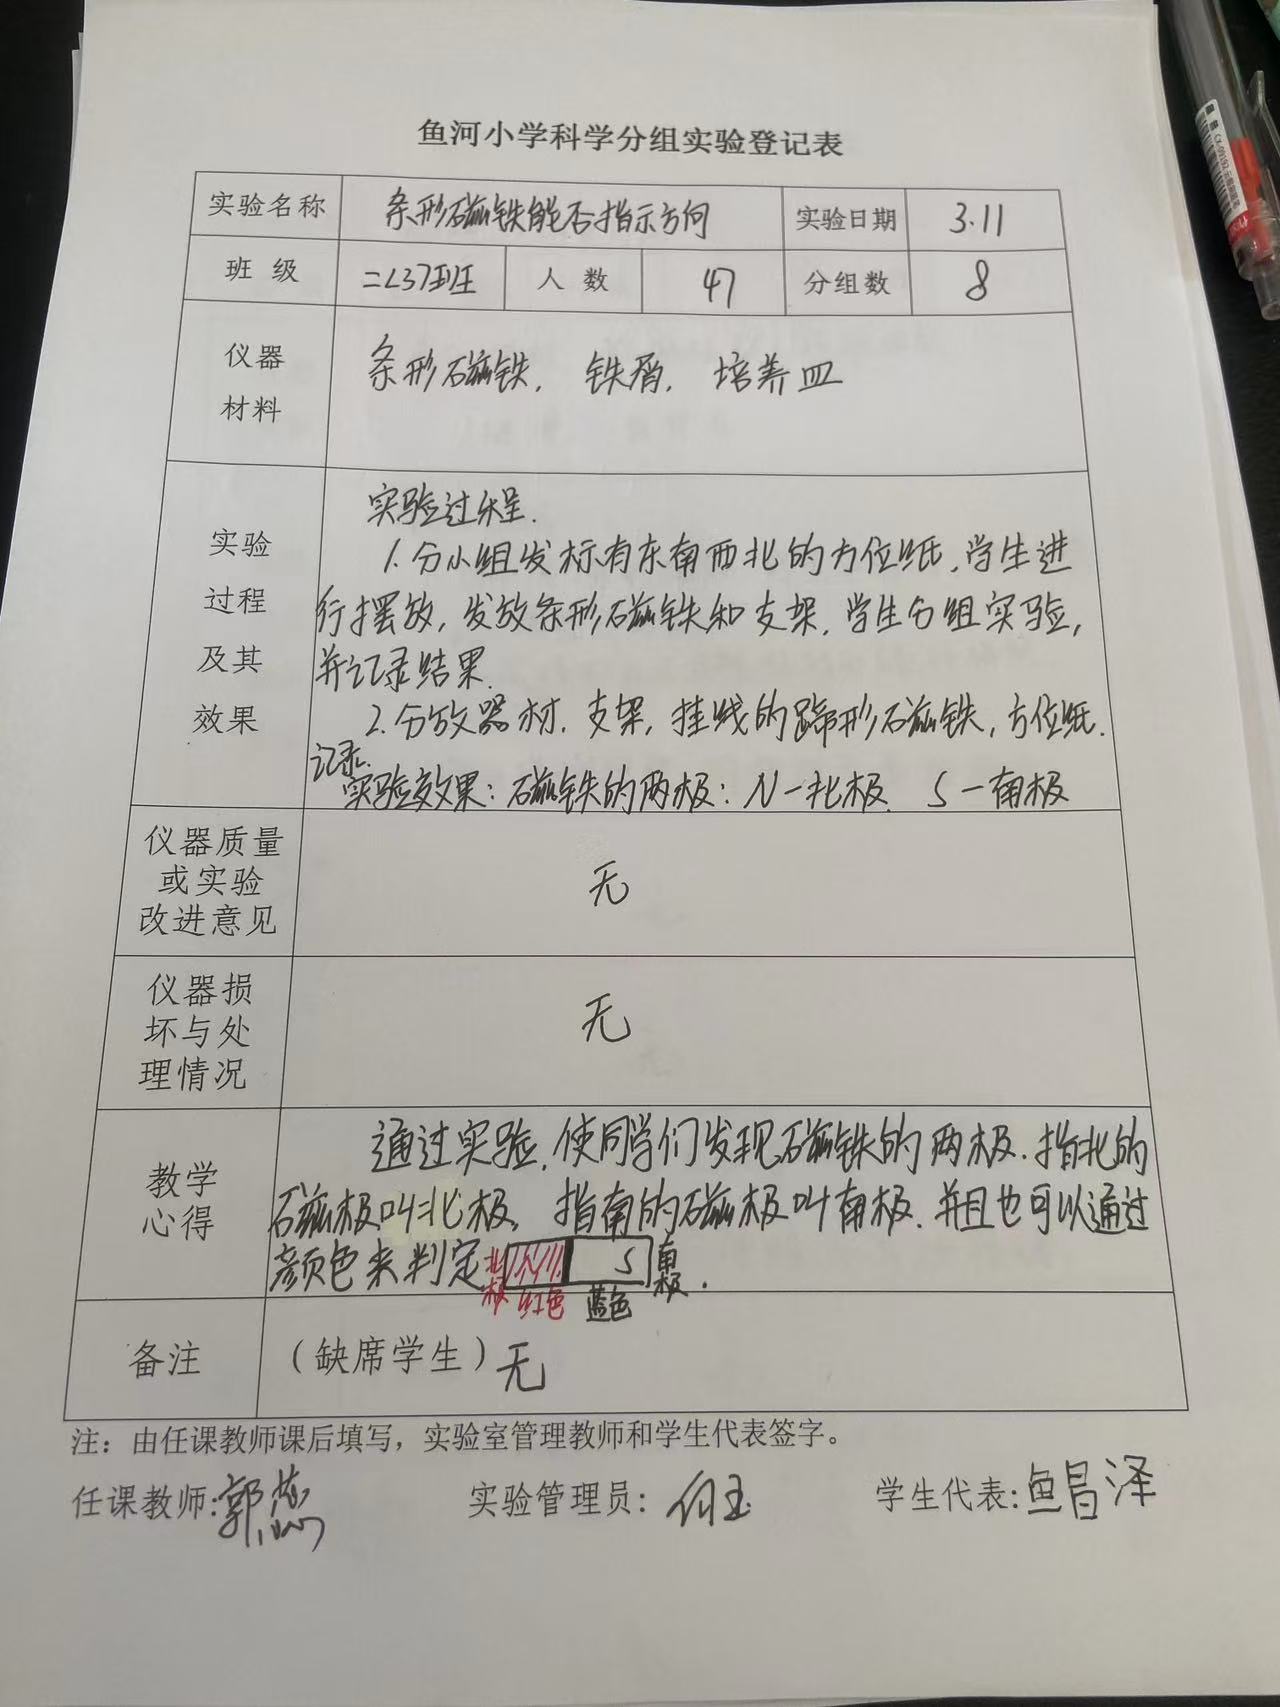 鱼河小学科学分组实验登记表
实验名称 条形磁铁能否指示方向 实验日期 3.11
班 级 二<3>班 人 数 47 分组数 8
仪器
材料
条形磁铁, 铁屑, 培养皿
实验
过程
及其
效果
实验过程.
1. 分小组发标有东南西北的方位纸,学生进
行摆放, 发放条形磁铁和支架, 学生分组实验,
并记录结果.
2. 分放器材, 支架, 挂线的蹄形磁铁, 方位纸.
记录.
实验效果: 磁铁的两极: N-北极. S-南极
仪器质量
或实验
改进意见
无
仪器损
坏与处
理情况
无
教学
心得
通过实验,使同学们发现磁铁的两极. 指北的
磁极叫北极, 指南的磁极叫南极. 并且也可以通过
颜色来判定 北极 N S 南极.
红色 蓝色
备注 (缺席学生) 无
注：由任课教师课后填写，实验室管理教师和学生代表签字。
任课教师:郭蕊 实验管理员: 学生代表:鱼昌泽